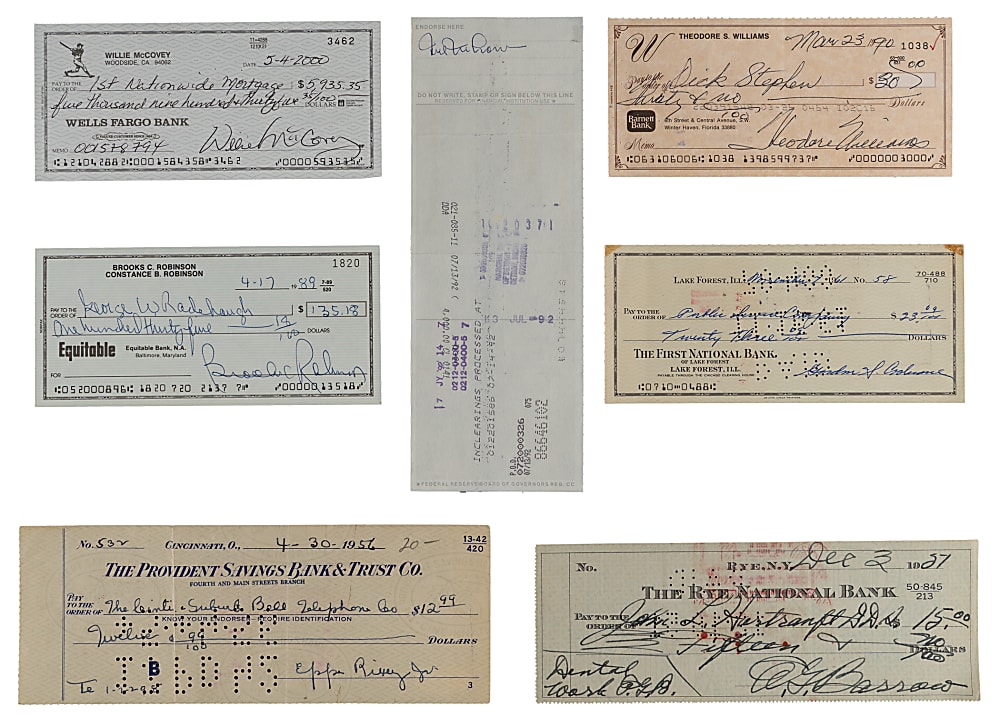 WILLIE McCOVEY
WOODSIDE, CA 94062
11-4288
1210(8)
3462
DATE 5-4-2000
PAY TO THE ORDER OF 1st Nationwide Mortgage $5,935.35
five thousand nine hundred thirty five 35/100 DOLLARS
WELLS FARGO BANK
MEMO 001578794 Willie McCovey
⑆121042882⑆0001584358⑈3462 ⑈0000593535⑈
BROOKS C. ROBINSON
CONSTANCE B. ROBINSON
1820
4-17 1989 7-89
520
PAY TO THE ORDER OF George W Radebaugh $135.18
One hundred thirty five 18/100 DOLLARS
Equitable Equitable Bank, N.A.
Baltimore, Maryland
FOR Brooks Robinson
⑆052000896⑆ 1820 720 2137 7⑈ ⑈0000013518⑈
ENDORSE HERE
DO NOT WRITE, STAMP OR SIGN BELOW THIS LINE
RESERVED FOR FINANCIAL INSTITUTION USE
021-085-11 07/13/92
DDA
JUL 92
17 JY 92 14
0212-0400-5 7
0212-0400-5
INCLEARINGS PROCESSED AT
P.O.D.
07/13/92
072000326 075
06646102
FEDERAL RESERVE BOARD OF GOVERNORS REG. CC
THEODORE S. WILLIAMS
Mar 23 1990 1038
Pay to the order of Dick Stephen $30 00
Thirty & no/100 Dollars
Barnett Bank
6th Street & Central Avenue, S.W.
Winter Haven, Florida 33880
Memo Theodore Williams
⑆063106006⑆ 1038 1398599737⑈ ⑈0000003000⑈
LAKE FOREST, ILL. November 2, 61 No. 58 70-488
710
PAY TO THE ORDER OF Public Service Company $23.00
Twenty Three DOLLARS
THE FIRST NATIONAL BANK
OF LAKE FOREST
LAKE FOREST, ILL.
PAYABLE THROUGH THE CHICAGO CLEARING HOUSE
Gordon S Cochrane
⑆0710⑉0488⑆
No. 532 CINCINNATI, O., 4-30-1956 20- 13-42
420
THE PROVIDENT SAVINGS BANK & TRUST CO.
FOURTH AND MAIN STREETS BRANCH
PAY TO THE ORDER OF The Cinti. & Suburb. Bell Telephone Co $12 99
KNOW YOUR ENDORSER - REQUIRE IDENTIFICATION
Twelve & 99/100 DOLLARS
B
Eppa Rixey Jr.
3
No. RYE, N.Y. Dec 3 1951
THE RYE NATIONAL BANK 50-845
213
PAY TO THE ORDER OF John L. Hartranft D.D.S. $15.00
Fifteen & no/100 DOLLARS
Dental
Work E.G.B. E G Barrow